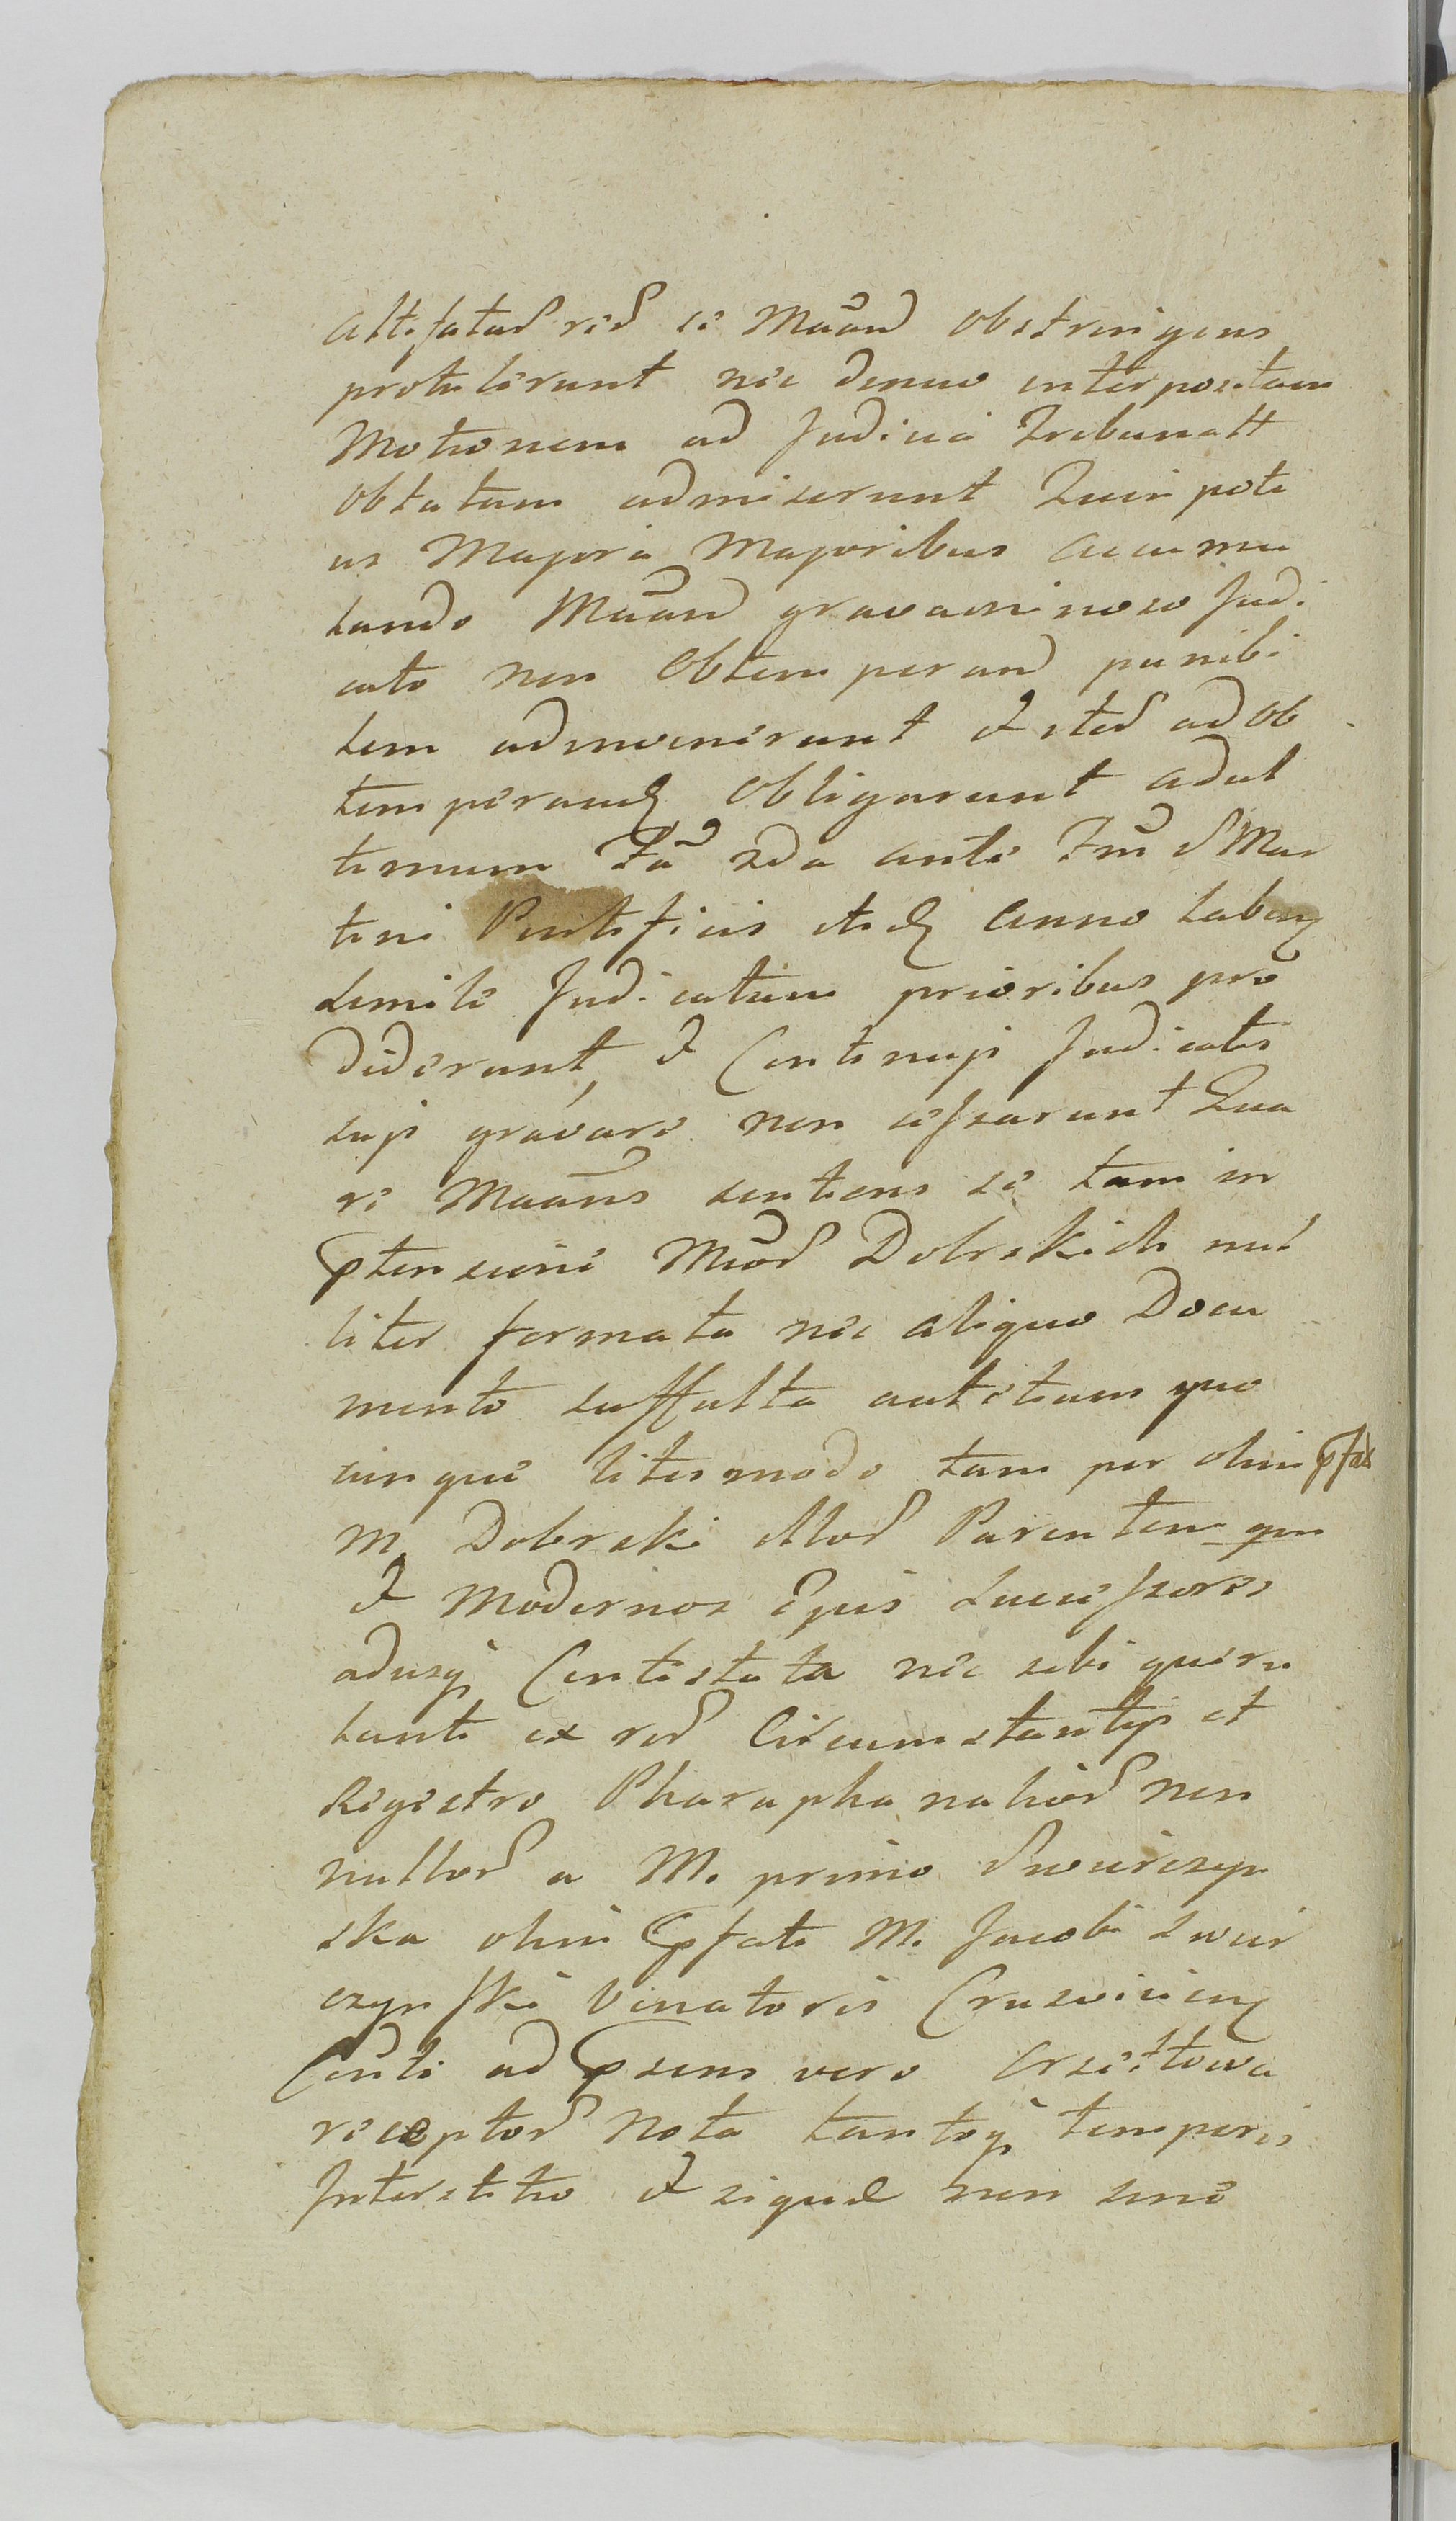 Altefatad red se Maand obstringens
protulerunt nec denuo interpositam
Motionem ad Judicia Tribunalt
oblatam admiserunt Quin poti
us Majora Majoribus accumu
lando Maand gravaminoso Judi
cato non obtemperand punibi
lem adinvenerunt et sted ad ob
temperand obligarunt ad ul
timum Fa 2da ante Fm S Mar
tini Pontificis itid Anno laben
simile Judicatum prioribus pro
diderunt, et Continuis Judicatis
suis gravare non cessarunt Qua
re Maans sentiens se tam in
ptensione Mcod Dobrskich nul
liter formata nec aliquo Docu
mento suffulta aut etiam quo
cunque litis modo tam per olim pfat
M. Dobrski illod Parentem qm
et Modernos Ejus Successores
adusq Contestata nec sibi queru
lanti ex red Circumstantijs et
Registro Pharaphanaliod non
nullod a M. primo Swierczyn
ska olim pfati M. Jacobi Swier
czynski Venatoris Crusvicien
Conti ad psens vero Orzeltowa
receptod Nota tantoq temporis
Interstitio et siquid non sine